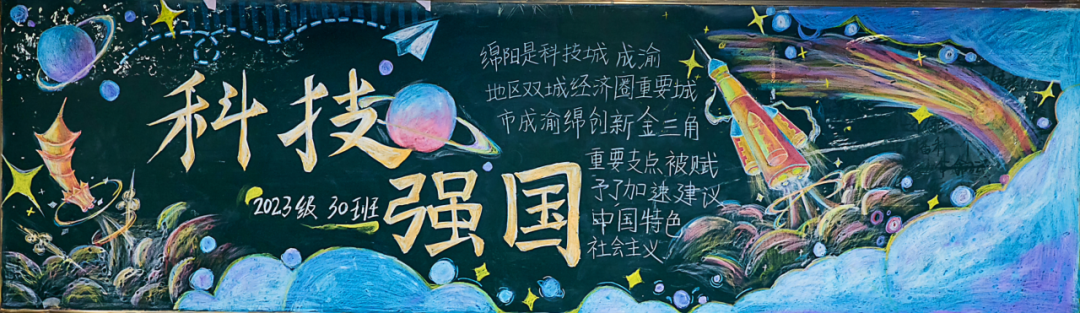 科技
强国
2023级 30班
绵阳是科技城 成渝
地区双城经济圈重要城
市成渝绵创新金三角
重要支点被赋
予了加速建议
中国特色
社会主义